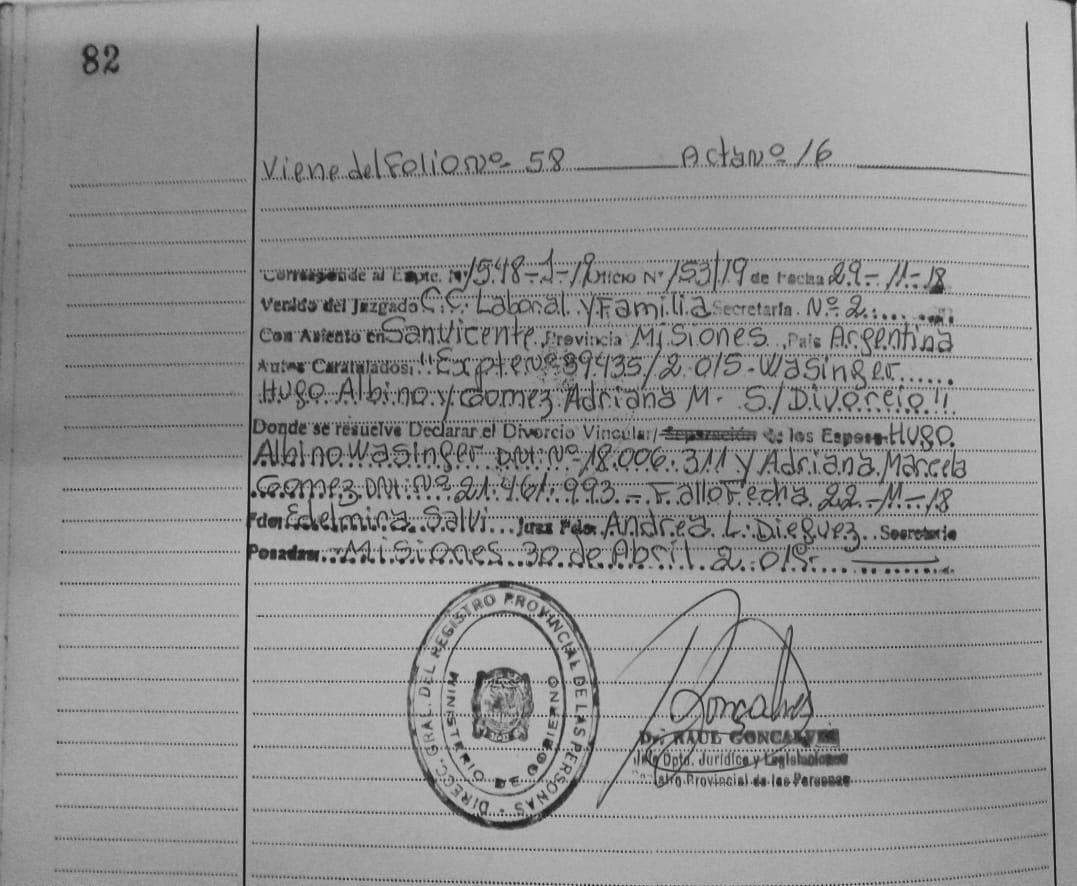 82
Viene del Folio nº 58 Acta nº 16
Corresponde al Expte. Nº 1548-J-19 Oficio Nº 153/19 de Fecha 29-11-18
Venido del Juzgado C.C. Laboral y Familia Secretaria Nº 2
Con Asiento en San Vicente Provincia Misiones País Argentina
Autos Caratulados: "Expte Nº 39435/2.015- Wasinger
Hugo Albino y Gomez Adriana M. S/ Divorcio"
Donde se resuelve Declarar el Divorcio Vincular/Separación de los Esposos Hugo
Albino Wasinger DNI: Nº 18.006.311 y Adriana Marcela
Gomez DNI: Nº 21.461.993 - Fallo Fecha 22-11-18
Fdor Edelmira Salvi Juez Fdor Andrea L. Dieguez Secretario
Posadas Misiones 30 de Abril 2.019
DIRECC. GRAL. DEL REGISTRO PROVINCIAL DE LAS PERSONAS -
MINISTERIO DE GOBIERNO
Gonçalves
Dr. RAUL GONCALVES
Jefe Dpto. Jurídico y Legislaciones
Registro Provincial de las Personas